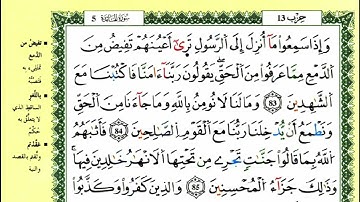 حزب 13
سورة المائدة 5
وَإِذَا سَمِعُوا مَا أُنزِلَ إِلَى الرَّسُولِ تَرَىٰ أَعْيُنَهُمْ تَفِيضُ مِنَ
الدَّمْعِ مِمَّا عَرَفُوا مِنَ الْحَقِّ يَقُولُونَ رَبَّنَا ءَامَنَّا فَاكْتُبْنَا مَعَ
الشَّٰهِدِينَ 83 وَمَا لَنَا لَا نُومِنُ بِاللَّهِ وَمَا جَاءَنَا مِنَ الْحَقِّ
وَنَطْمَعُ أَنْ يُدْخِلَنَا رَبُّنَا مَعَ الْقَوْمِ الصَّٰلِحِينَ 84 فَأَثَٰبَهُمُ
اللَّهُ بِمَا قَالُوا جَنَّٰتٍ تَجْرِي مِن تَحْتِهَا الْأَنْهَٰرُ خَٰلِدِينَ فِيهَا
وَذَٰلِكَ جَزَاءُ الْمُحْسِنِينَ 85 وَالَّذِينَ كَفَرُوا وَكَذَّبُوا
تفيض من
الدمع